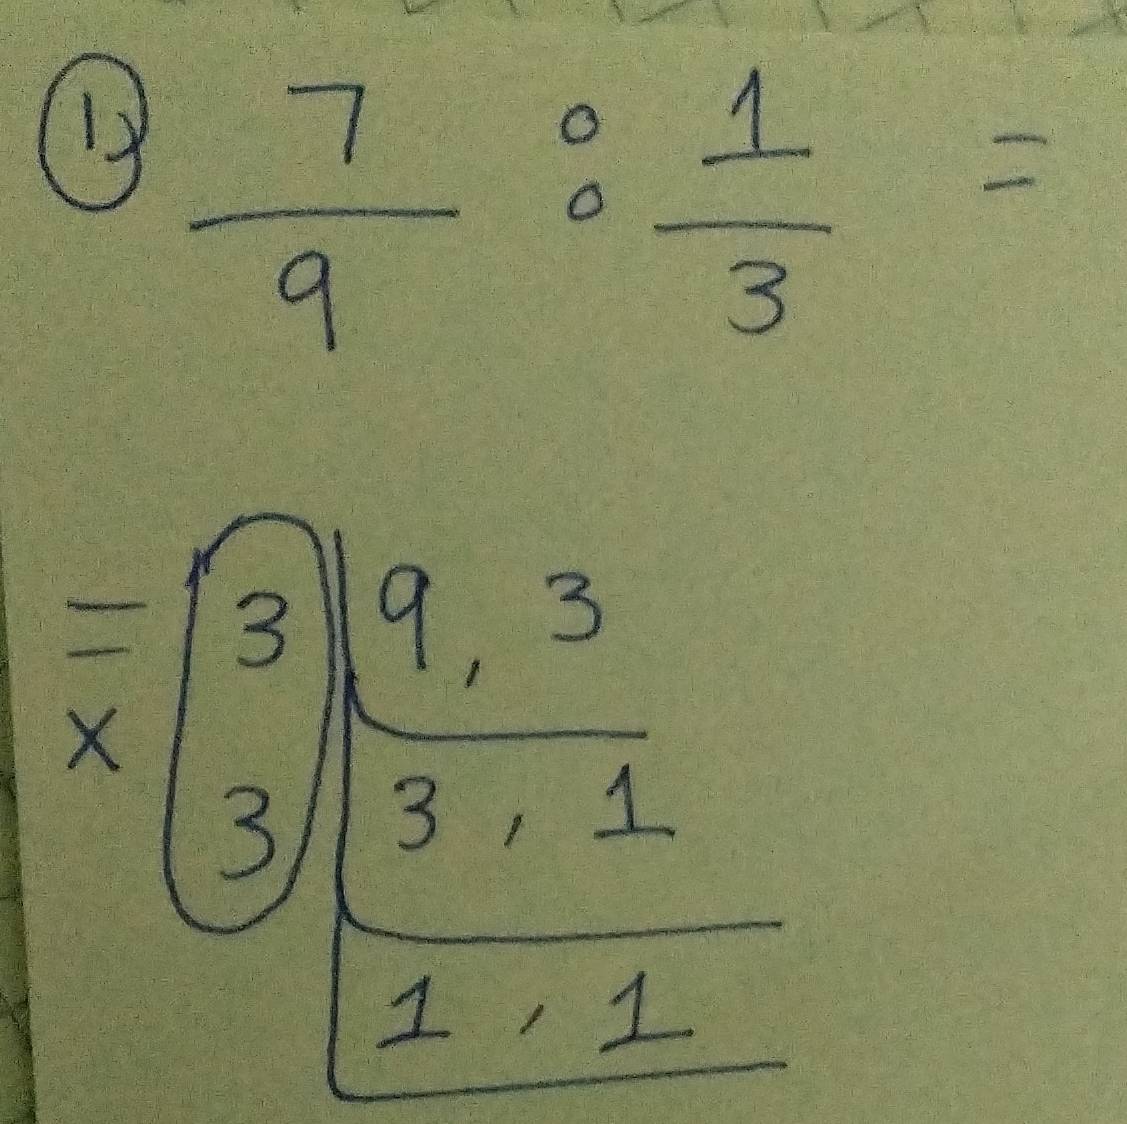 1) 7/9 : 1/3 =
= 3 | 9, 3
× 3 | 3, 1
1, 1